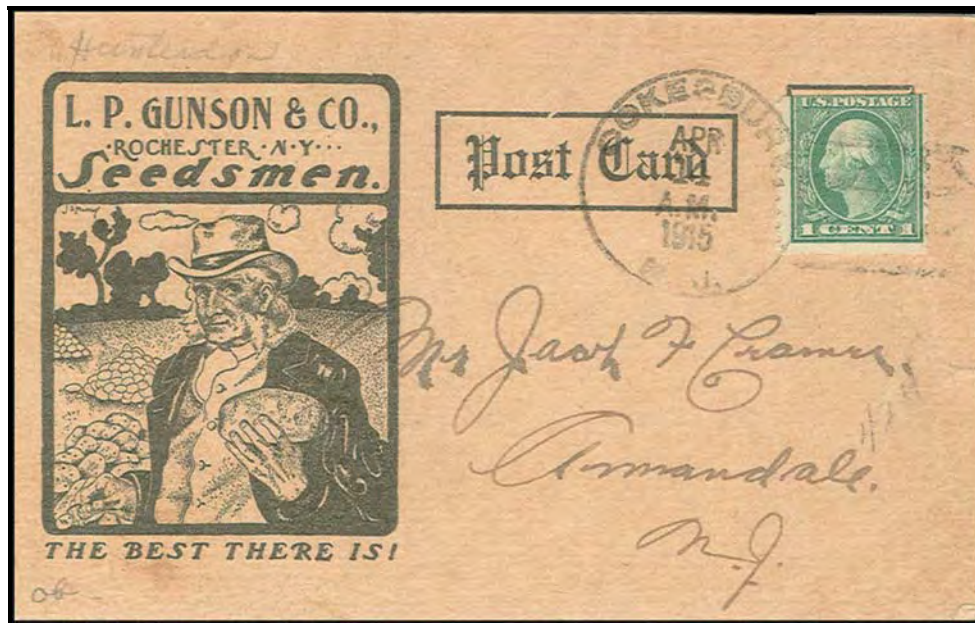 Hunterdon
L. P. GUNSON & CO.,
·ROCHESTER·N·Y···
Seedsmen.
THE BEST THERE IS!
Post Card
APR
A.M.
1915
N.J.
U.S. POSTAGE
1 CENT 1
Mr F Cramer
Annandale.
N.J.